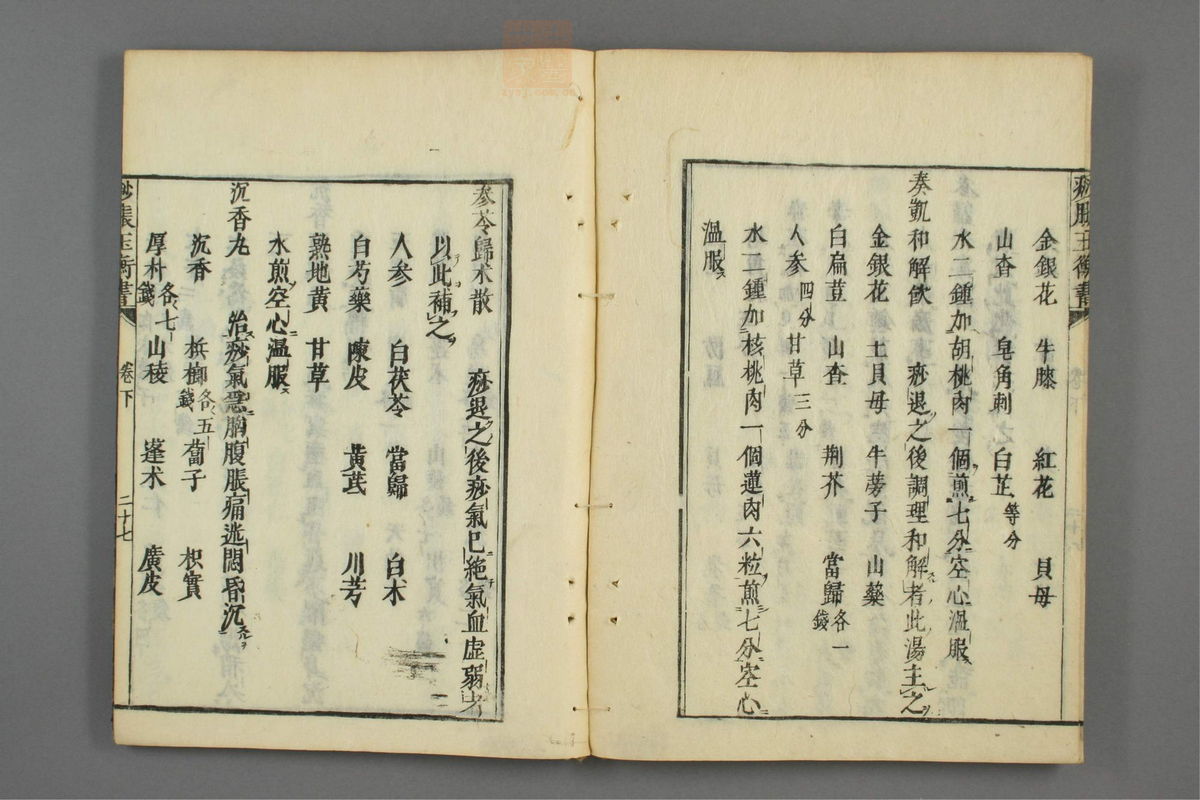 痧脹玉衡書
金銀花 牛膝 紅花 貝母
山查 皂角刺 白芷 等分
水二鍾加胡桃肉一個煎七分空心溫服
奏凱和解飲 痧退之後調理和解者此湯主之
金銀花 土貝母 牛蒡子 山藥
白扁荳 山查 荆芥 當歸 各一錢
人參 四分 甘草 三分
水二鍾加核桃肉一個蓮肉六粒煎七分空心
溫服
參苓歸术散 痧退之後痧氣已絶氣血虛弱者
以此補之
人參 白茯苓 當歸 白朮
白芍藥 陳皮 黃茋 川芎
熟地黃 甘草
水煎空心溫服
沉香丸 治痧氣急胸腹脹痛迷悶昏沉
沉香 檳榔 各五錢 蔔子 枳實
厚朴 各七錢 山稜 蓬术 廣皮
痧脹玉衡書 卷下 二十七